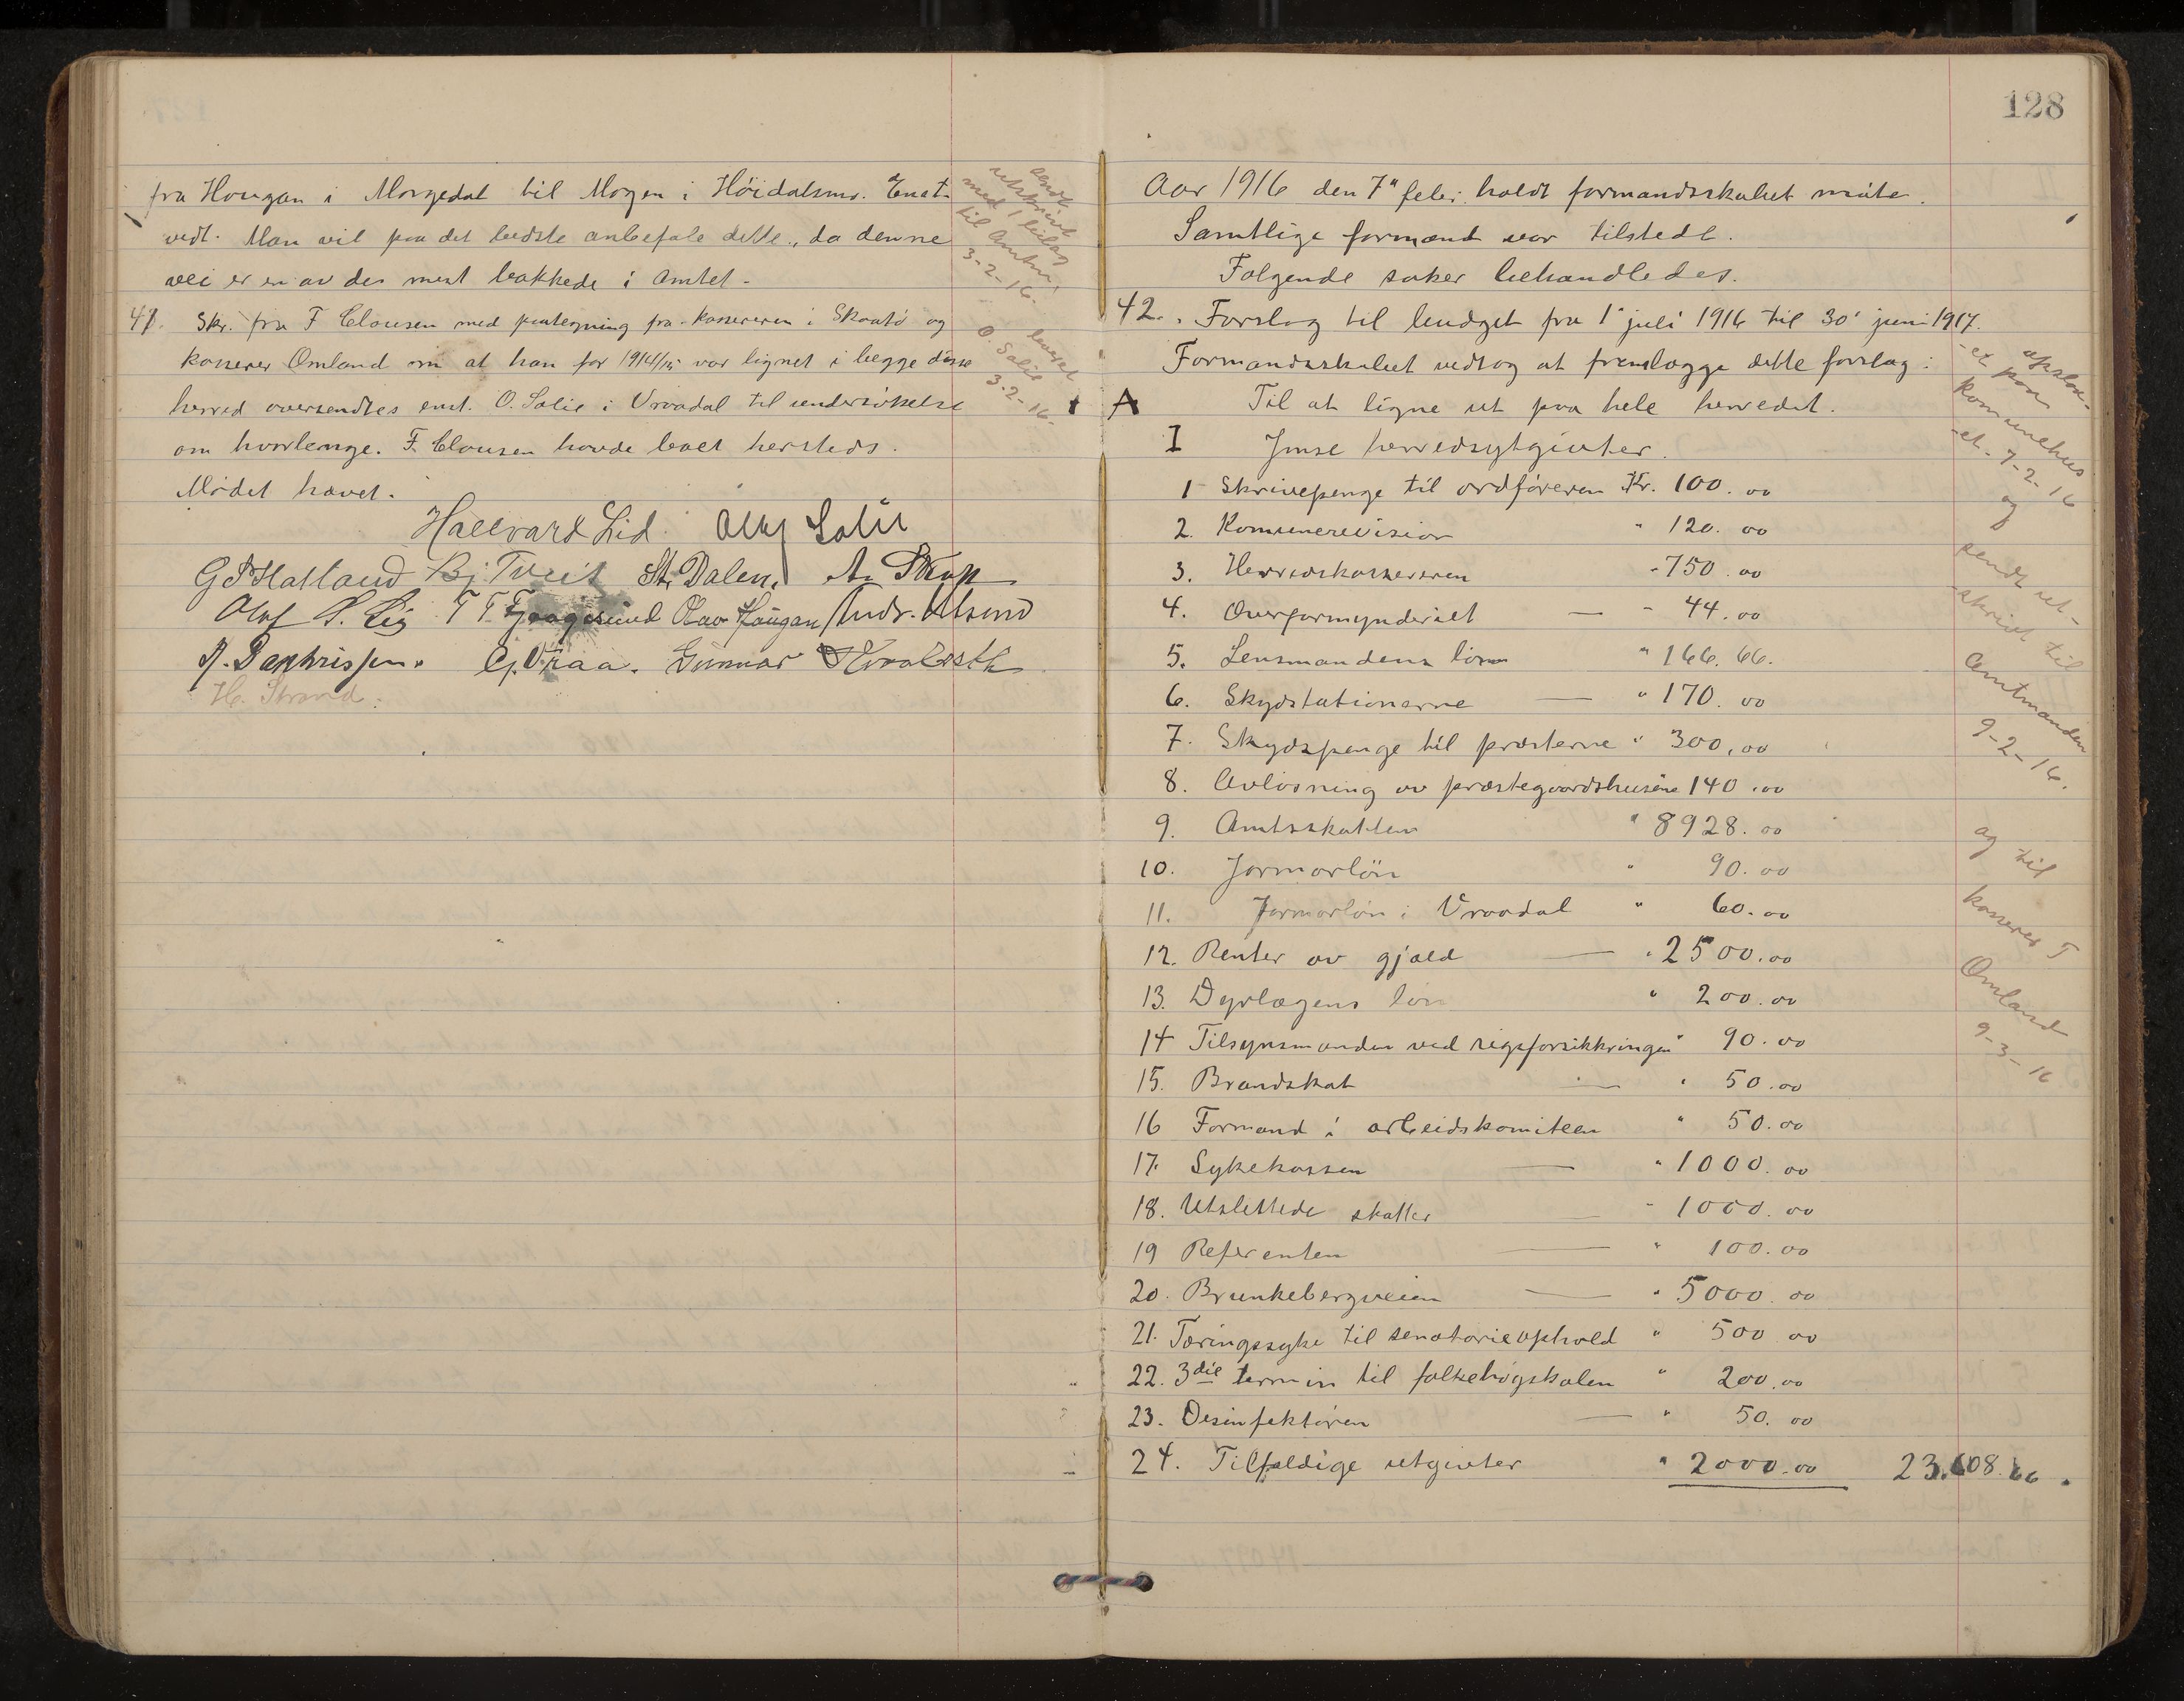 fra Hougan i Morgedal til Mogen i Höidalsmo. Enst.
vedt. Man vil paa det bedste anbefale dette, da denne
vei er en av des mest bakkede i Amtet.
41. Skr. fra F Clausen med paategning fra kassereren i Skaatö og
kasserer Omland om at han for 1914/15 var lignet i begge disse
herred oversendtes enst. O. Salie i Vraadal til undersökelse
om hvorlenge F. Clausen havde levet hersteds.
Mödet hævet.
Hallvard Lid. Olav Salie
Bj. Tveit St. Dalen,
Olav Haugan
G. Vraa. Gunnar
H. Strand.
sendt
utskrift
med 1 bilag
til Amtm.
3-2-16.
leveret
O. Salie
3-2-16.
128
Aar 1916 den 7" febr. holdt formandsskabet möte.
Samtlige formænd var tilstede.
Følgende saker behandledes.
42. Forslag til budget fra 1' juli 1916 til 30' juni 1917.
Formandsskabet vedtog at fremlægge dette forslag:
A Til at ligne ut paa hele herredet.
I Ymse herredsutgivter.
1 Skrivepenge til ordföreren Kr. 100.00
2. Komunerevision " 120.00
3. Herredskassereren " 750.00
4. Overformynderiet — " 44.00
5. Lensmandens lön " 166.66.
6. Skydstationerne — " 170.00
7. Skydspenge til presterne " 300,00
8. Avlösning av prestegaardshusene 140.00
9. Amtsskatten " 8928.00
10. Jormorlön " 90.00
11. Jormorlön i Vraadal " 60.00
12. Renter av gjæld — " 2500.00
13. Dyrlægens lön " 200.00
14 Tilsynsmanden ved rigsforsikkringen " 90.00
15. Brandskat — " 50.00
16 Formand i arbeidskomiteen " 50.00
17. Sykekassen — " 1000.00
18. Utslettede skatter — " 1000.00
19 Referenten — " 100.00
20. Brunkebergveien — " 5000.00
21. Tæringssyke til senatorieophold " 500 00
22. 3die termin til folkehögskolen " 200.00
23. Desinfektören — " 50.00
24. Tilfældige utgivter " 2000.00 23.608.66.
opslaa-
-et paa
komunehus
-et. 7-2-16
og
sendt ut-
-skrift til
Amtmanden
9-2-16.
og til
kasserer T
Omland
9-3-16